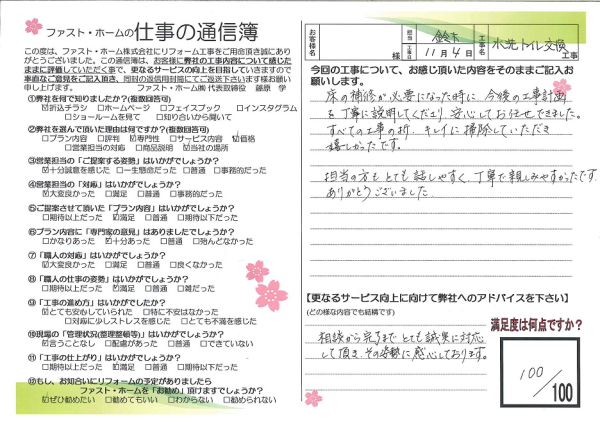 ファスト・ホームの仕事の通信簿
この度は、ファスト・ホーム株式会社にリフォーム工事をご用命頂き誠にあり
がとうございました。この通信簿は、お客様に弊社の工事内容について感じた
ままに評価していただく事で、更なるサービスの向上を目指していきますので
率直なご意見をご記入頂き、同封の返信用封筒にてご返送下さいます様お願い
申し上げます。 ファスト・ホーム㈱ 代表取締役 藤原 学
①弊社を何で知りましたか?(複数回答可)
☑折込チラシ □ホームページ □フェイスブック □インスタグラム
□ショールームを見て □知り合いから聞いて
②弊社を選んで頂いた理由は何ですか?(複数回答可)
□プラン内容 □評判 ☑専門性 □サービス内容 ☑価格
□営業担当の対応 □商品説明 ☑当社の場所
③営業担当の「ご提案する姿勢」はいかがでしょうか?
☑十分誠意を感じた □一生懸命だった □普通 □事務的だった
④営業担当の「対応」はいかがでしょうか?
☑大変良かった □満足 □普通 □事務的だった
⑤ご提案させて頂いた「プラン内容」はいかがでしょうか?
□期待以上だった ☑満足 □普通 □期待以下だった
⑥プラン内容に「専門家の意見」はありましたでしょうか?
□かなりあった ☑十分あった □普通 □殆んどなかった
⑦「職人の対応」はいかがでしょうか?
☑大変良かった □満足 □普通 □良くなかった
⑧「職人の仕事の姿勢」はいかがでしょうか?
□期待以上だった ☑満足 □普通 □雑だった
⑨「工事の進め方」はいかがでしたか?
☑とても安心していられた □特に不安はなかった
□対応に少しストレスを感じた □とても不満を感じた
⑩現場の「管理状況(整理整頓等)」はいかがでしょうか?
☑言うことなし □配慮があった □普通 □できていない
⑪「工事の仕上がり」はいかがでしょうか?
□期待以上だった ☑満足 □普通 □期待以下だった
⑫もし、お知合いにリフォームの予定がありましたら
ファスト・ホームを「お勧め」頂けますでしょうか?
☑ぜひ勧めたい □勧めてもいい □わからない □勧められない
お客様名 様
担当 鈴木
工事日 11月4日
工事名 水洗トイレ交換 工事
今回の工事について、お感じ頂いた内容をそのままご記入お
願いします。
床の補修が必要になった時に、今後の工事計画
を丁寧に説明してくださり、安心してお任せできました。
すべての工事の折、キレイに掃除していただき
嬉しかったです。
担当の方もとても話しやすく、丁寧で親しみやすかったです。
ありがとうございました。
【更なるサービス向上に向けて弊社へのアドバイスを下さい】
(どの様な内容でも結構です)
相談から完了まで とても誠実に対応
して頂き、その姿勢に感心しております。
満足度は何点ですか?
100
/100